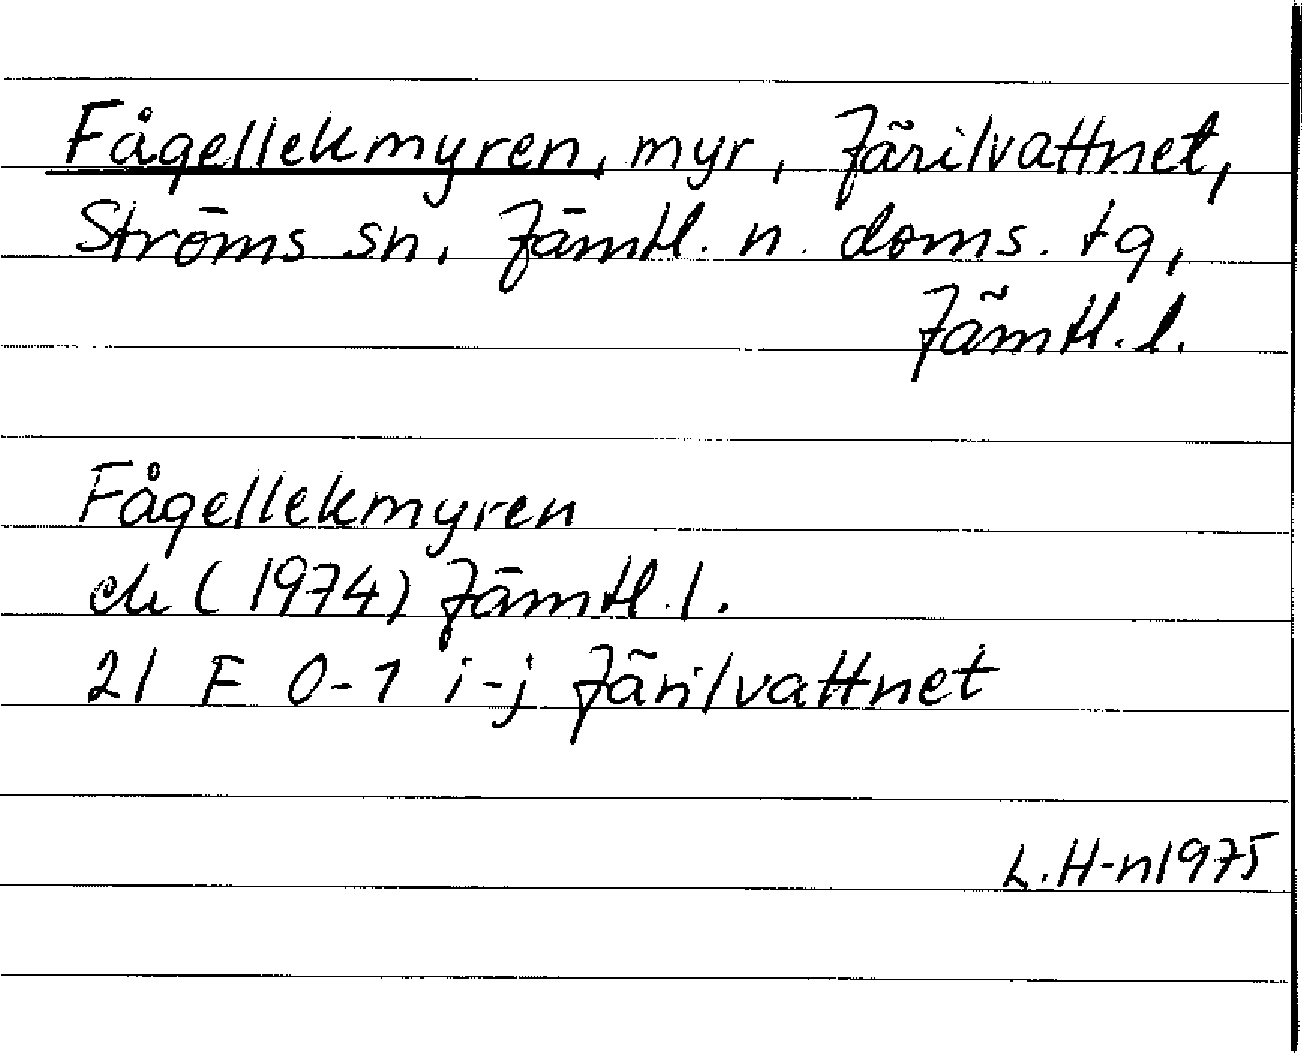 Fågellekmyren, myr, Järilvattnet,
Ströms sn, Jämtl. n. doms. tg,
Jämtl. l.
Fågellekmyren
ek (1974) Jämtl. l.
21 F 0-1 i-j Järilvattnet
L. H-n 1975